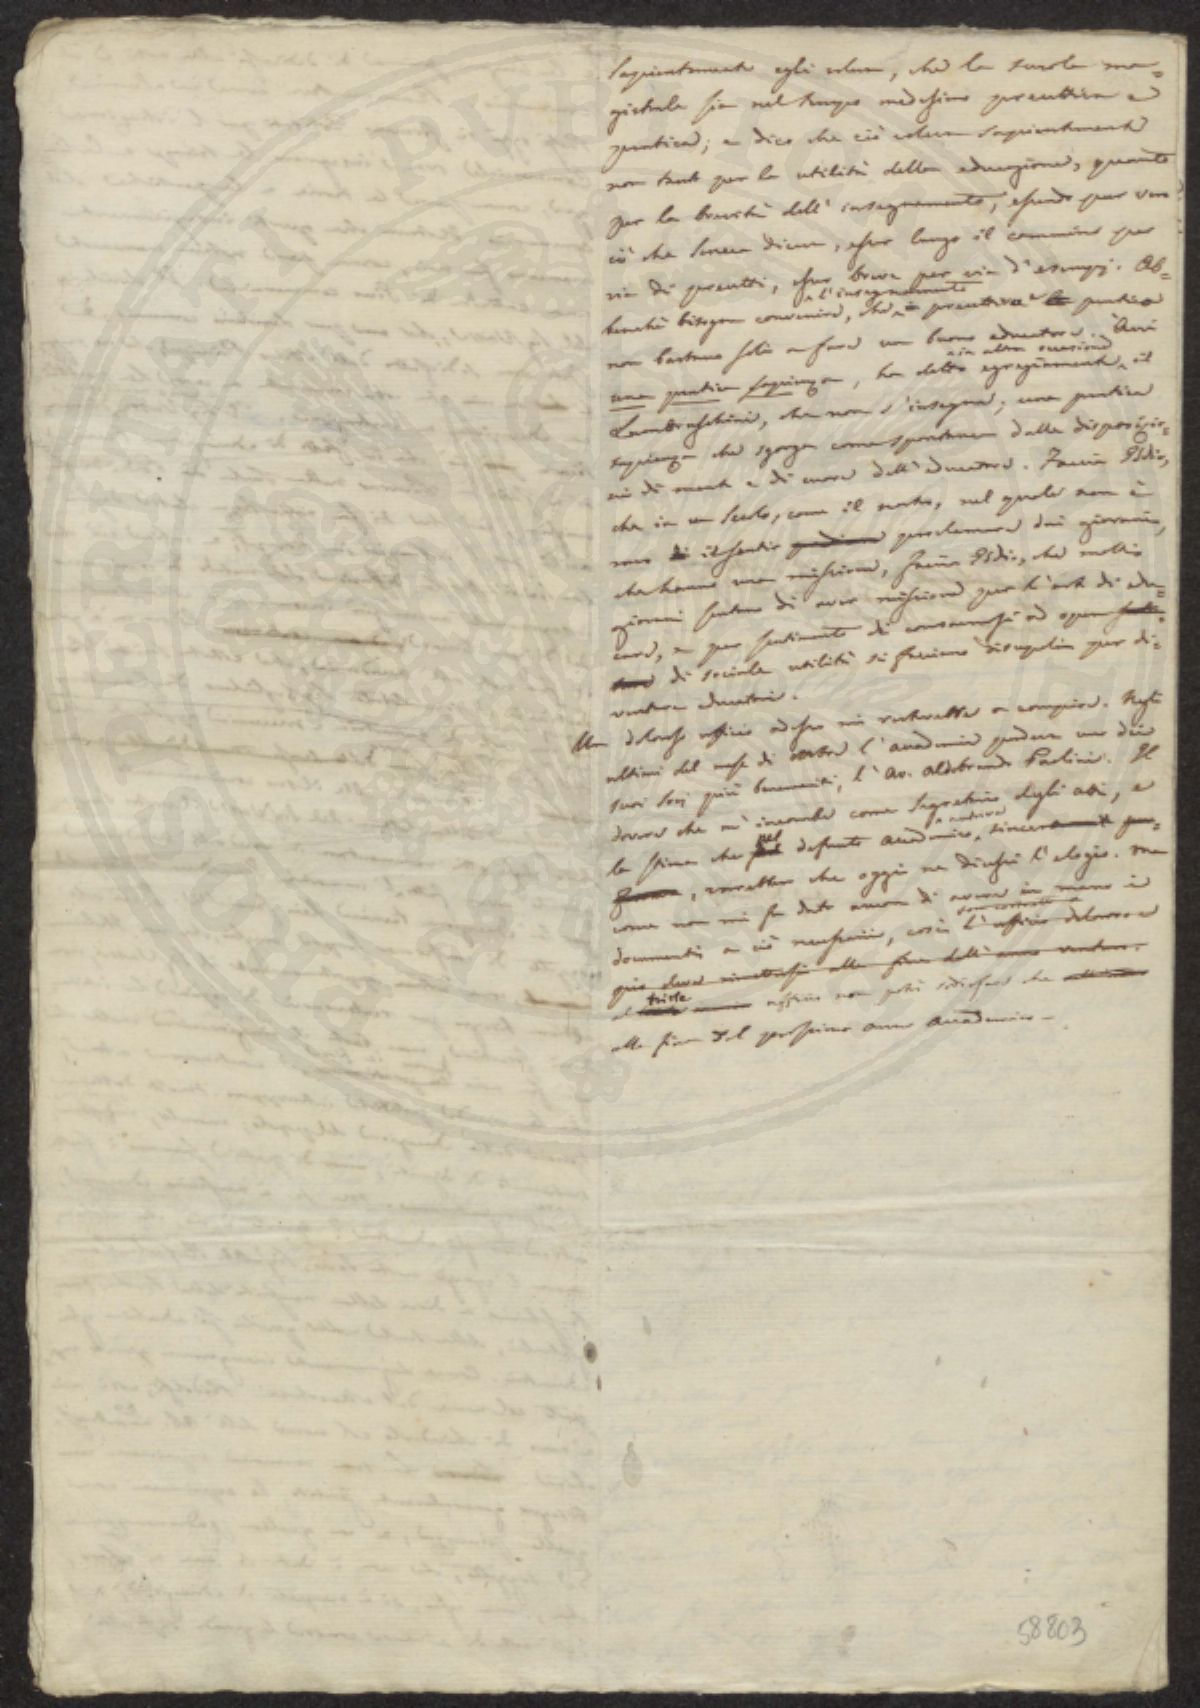 sapientemente egli voleva, che la scuola ma=
gistrale sia nel tempo medesimo precettiva e
pratica; e dico che ciò voleva sapientemente
non tanto per la utilità della educazione, quanto
per la brevità dell'insegnamento, essendo pur vero
ciò che Seneca diceva, esser lungo il cammino per
via di precetti, esser breve per via d'esempj. Ab=
benchè bisogna convenire, che l'insegnamento precettivo e pratico
non bastano soli a fare un buono educatore. Avvi
una pratica sapienza, ha detto egregiamente in altra occasione il
Lambruschini, che non s'insegna; una pratica
sapienza che sgorga come spontanea dalle disposizio=
ni di mente e di cuore dell'educatore. Faccia Iddio,
che in un secolo, come il nostro, nel quale non è
raro il sentir proclamare dai giovani,
che hanno una missione, faccia Iddio, che molti
giovani sentano di aver missione per l'arte di edu=
care, e per sentimento di consacrarsi ad opera
di sociale utilità si facciano discepoli per di=
ventare educatori.
Un doloroso ufficio adesso mi resterebbe a compiere. Negli
ultimi del mese di l'Accademia perdeva uno dei
suoi socj più benemeriti, l'Av. Aldobrando Paolini. Il
dovere che m'incombe come Segretario degli atti, e
la stima che pel defunto accademico,
, vorrebbero che oggi ne dicessi l'elogio. Ma
come non mi fu dato ancora di avere in mano i
documenti a ciò necessarj, così l'ufficio doloroso e
pio devo rimettersi alla fine dell'anno venturo.
al triste ufficio non potrò sodisfare che
alla fine del prossimo anno accademico.
58803